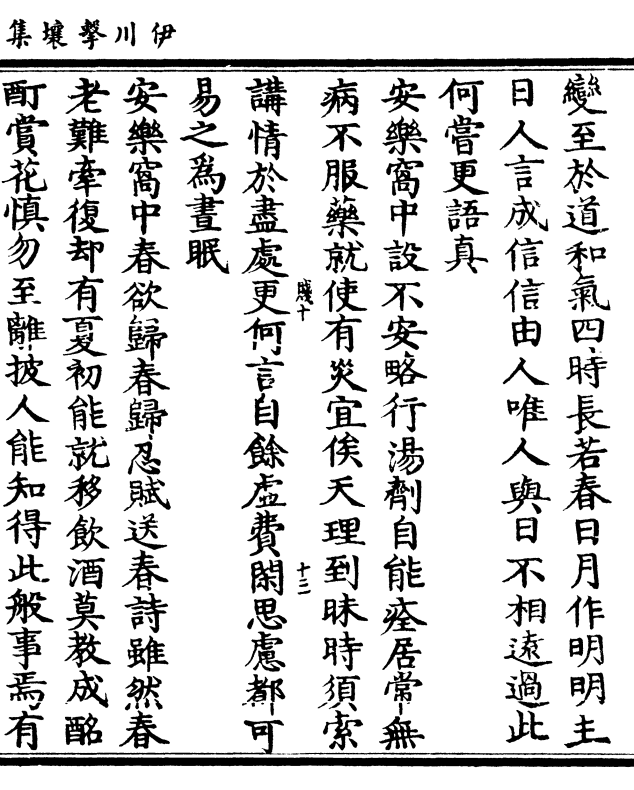 伊川擊壤集
變至於道和氣四時長若春日月作明明主
日人言成信信由人唯人與日不相遠過此
何嘗更語真
安樂窩中設不安略行湯劑自能痊居常無
病不服藥就使有災宜俟天理到昧時須索
講情於盡處更何言自餘虛費閑思慮都可
易之爲晝眠
安樂窩中春欲歸春歸忍賦送春詩雖然春
老難牽復却有夏初能就移飲酒莫教成酩
酊賞花慎勿至離披人能知得此般事焉有